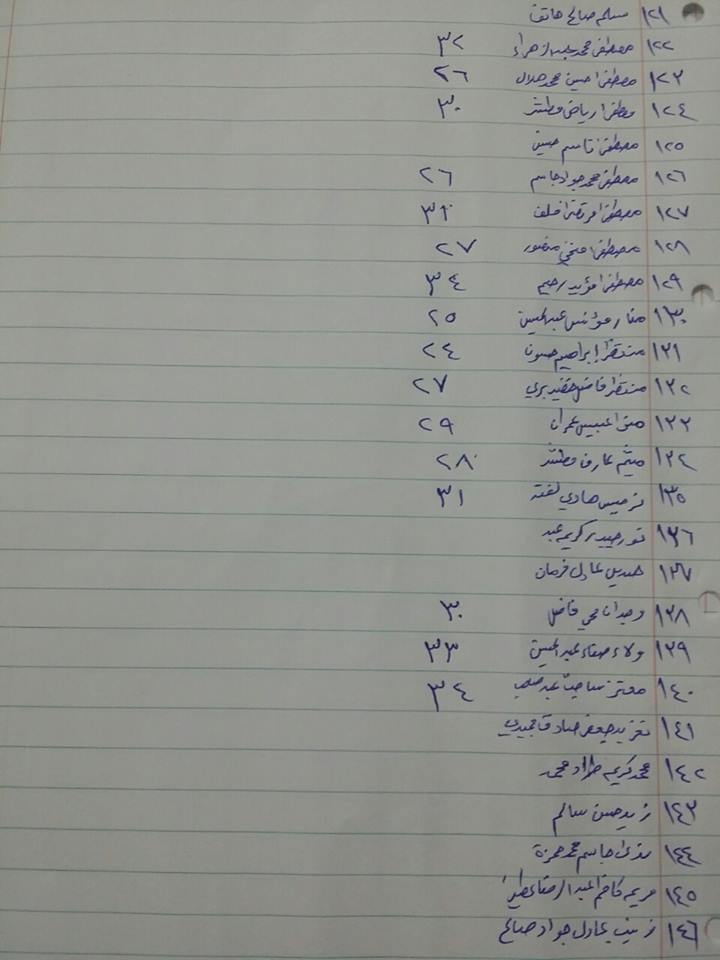 ١٢١ مسلم صالح هاتف
١٢٢ مصطفى محمد عبد الزهراء ٣٢
١٢٣ مصطفى حسين محمد هلال ٢٦
١٢٤ مصطفى رياض مطشر ٣٠
١٢٥ مصطفى قاسم حسين
١٢٦ مصطفى محمد جواد جاسم ٢٦
١٢٧ مصطفى مرتضى خلف ٣٢
١٢٨ مصطفى منصور ٢٧
١٢٩ مصطفى مؤيد رحيم ٣٤
١٣٠ منار مؤنس عبد الحسين ٢٥
١٣١ منتظر إبراهيم حسون ٢٤
١٣٢ منتظر فاضل ٢٧
١٣٣ عمران ٢٩
١٣٤ ميثم عارف مطشر ٢٨
١٣٥ نرجس هادي لفته ٣١
١٣٦ نور كريم عبد
١٣٧ هديل عادل فرمان
١٣٨ وجدان محي فاضل ٣٠
١٣٩ ولاء صفاء عبد الحسين ٣٣
١٤٠ معتز صاحب ٣٤
١٤١ تغريد جعفر صادق
١٤٢ محمد كريم طراد محمد
١٤٣ زيد حسن سالم
١٤٤ جاسم محمد حمزة
١٤٥ مريم كاظم عبد الرضا
١٤٦ زينب عادل جواد صالح